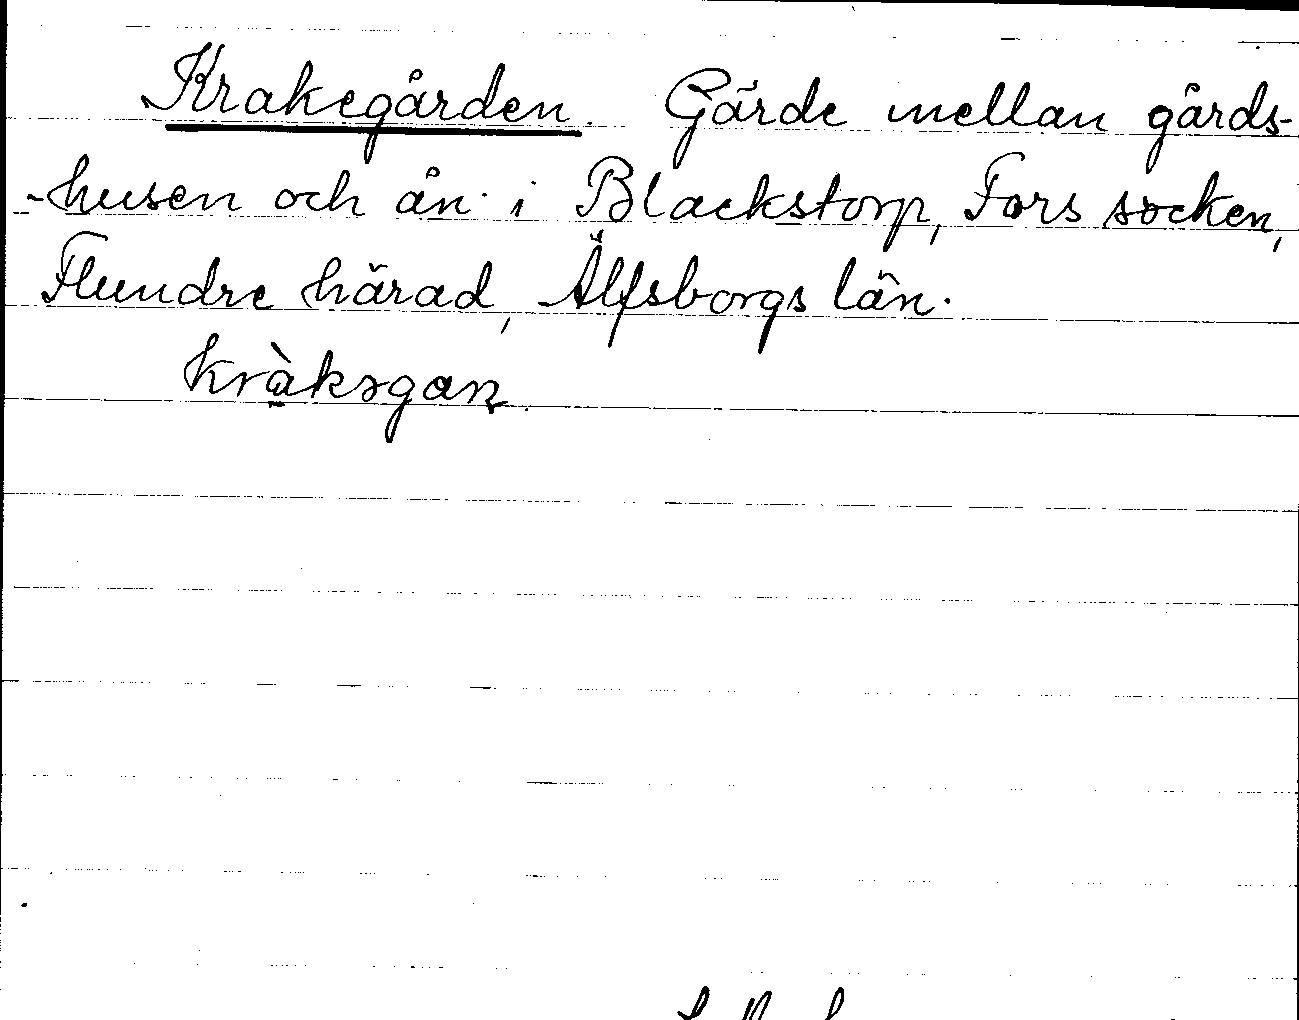 Krakegården. Gärde mellan gårds-
-husen och ån i Blackstorp, Fors socken,
Flundre härad, Älfsborgs län.
kràkəgan.